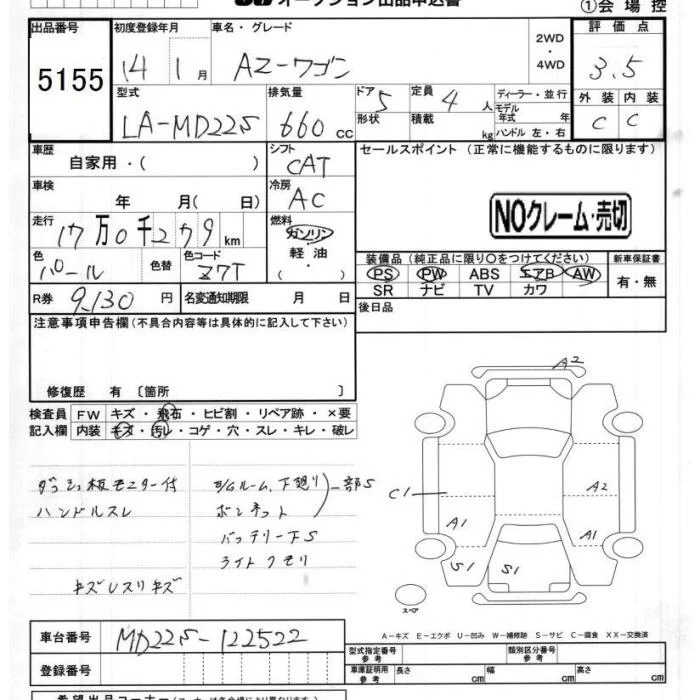 オークション出品申込書
①会場控
出品番号 初度登録年月 車名・グレード 2WD・4WD 評価点
5155 14 1月 AZ-ワゴン 3.5
型式 排気量 ドア 5 定員 4人 ディーラー・並行 外装 内装
LA-MD22S 660cc 形状 積載 kg モデル年式 年 C C
ハンドル 左・右
車歴 シフト セールスポイント (正常に機能するものに限ります)
自家用・( ) CAT
車検 冷房
年 月( 日) AC NOクレーム・売切
走行 燃料
17万0千279km ガソリン・軽油
色 色替 色コード 装備品(純正品に限り○をつけてください) 新車保証書
パール Z7T PS PW ABS エアB AW 有・無
SR ナビ TV カワ
R券 9,130円 名変通知期限 月 日 後日品
注意事項申告欄(不具合内容等は具体的に記入して下さい)
修復歴 有〔箇所 〕
検査員 FW キズ・飛石・ヒビ割・リペア跡・×要
記入欄 内装 キズ・汚レ・コゲ・穴・スレ・キレ・破レ
A2
ダッシュ板モニター付 E/Gルーム、下廻リ 一部S
ハンドルスレ ボンネット
C1 A2
バッテリー下S
A1 A1
ライトクモリ
S1 S1
キズUスリキズ
スペア
A-キズ E-エクボ U-凹み W-補修跡 S-サビ C-腐食 XX-交換済
車台番号 MD22S-122522
型式指定番号 参考 類別区分番号 参考
登録番号 車庫証明用 参考 長さ cm 幅 cm 高さ cm
希望出品コーナー